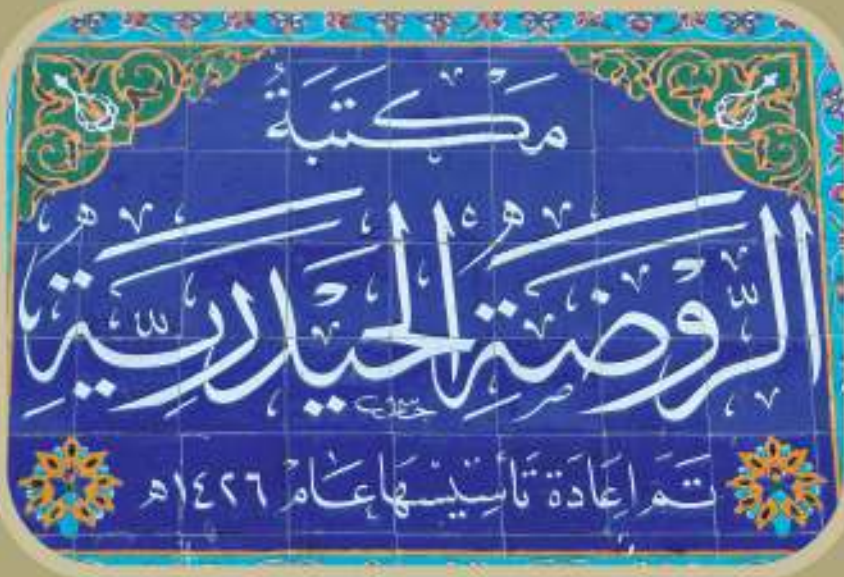 مَكتَبَةُ
الرَّوضَةِ الحَيدَرِيَّةِ
تَمَ اِعَادَة تَأسِيسهَا عَام ١٤٢٦ه